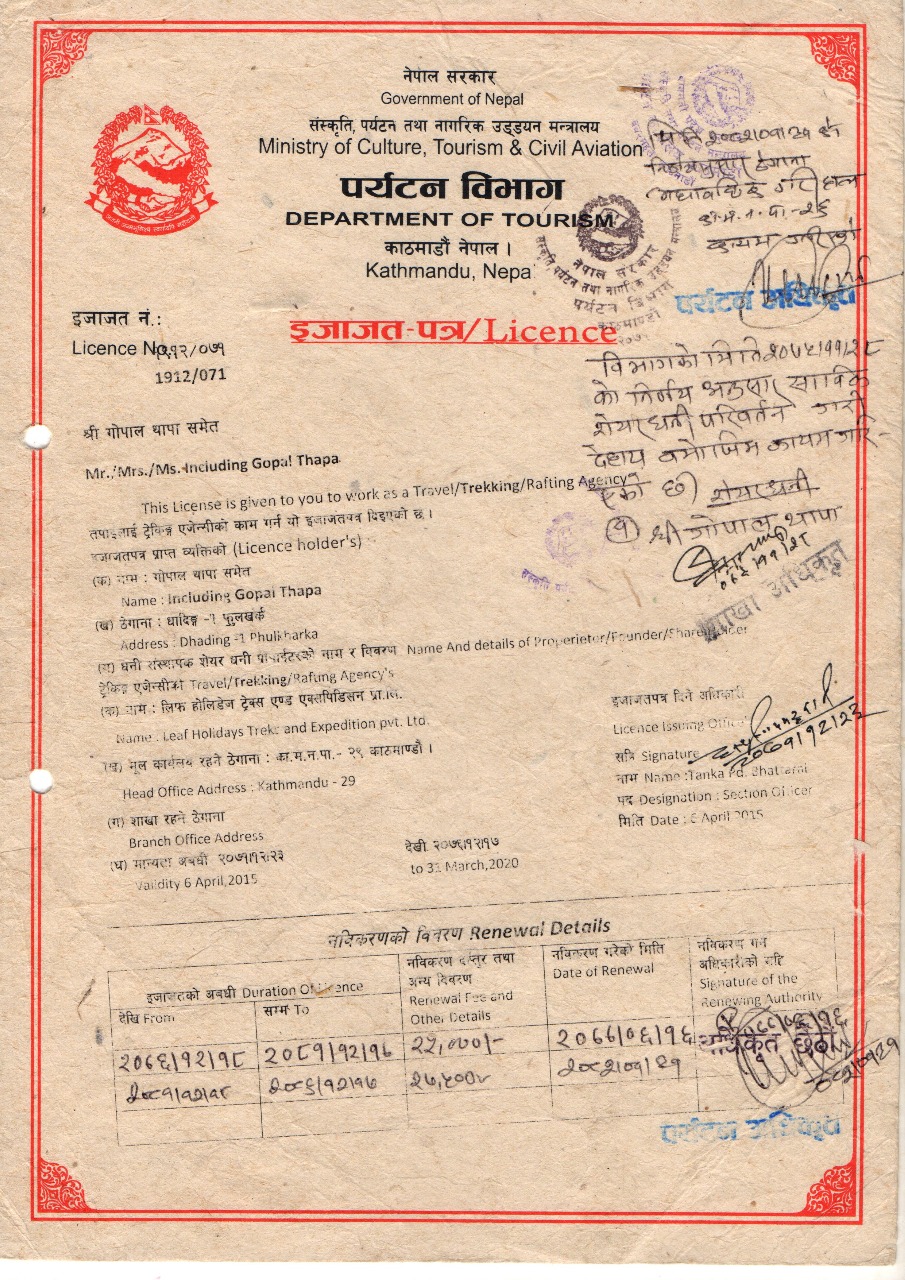 नेपाल सरकार
Government of Nepal
संस्कृति, पर्यटन तथा नागरिक उड्डयन मन्त्रालय
Ministry of Culture, Tourism & Civil Aviation
पर्यटन विभाग
DEPARTMENT OF TOURISM
काठमाडौं नेपाल ।
Kathmandu, Nepal
मिति २०८२/०१/२१ को
निर्णयानुसार ठेगाना
का.म.न.पा.-२६
कायम गरिएको
पर्यटन अधिकृत
नेपाल सरकार
संस्कृति, पर्यटन तथा नागरिक उड्डयन मन्त्रालय
पर्यटन विभाग
काठमाण्डौ
इजाजत नं.:
इजाजत-पत्र/Licence
Licence No.
१९१२/०७१
1912/071
विभागको मिति २०७५/११/२८
को निर्णय अनुसार साविक
शेयरधनी परिवर्तन गरी
देहाय बमोजिम कायम गरि-
एको छ। शेयरधनी
(१) श्री गोपाल थापा
शाखा अधिकृत
श्री गोपाल थापा समेत
Mr./Mrs./Ms. Including Gopal Thapa
This License is given to you to work as a Travel/Trekking/Rafting Agency
तपाइलाई ट्रेकिङ्ग एजेन्सीको काम गर्न यो इजाजतपत्र दिइएको छ ।
इजाजतपत्र प्राप्त व्यक्तिको (Licence holder's) :-
(क) नाम : गोपाल थापा समेत
Name : Including Gopal Thapa
(ख) ठेगाना : धादिङ्ग -१ फुलखर्क
Address : Dhading -1 Phulkharka
(ग) धनी संस्थापक शेयर धनी प्रोप्राईटरको नाम र विवरण Name And details of Properietor/Founder/Shareholder
ट्रेकिङ्ग एजेन्सीको Travel/Trekking/Rafting Agency's
(क) नाम : लिफ होलिडेज ट्रेक्स एण्ड एक्सपिडिसन प्रा.लि.
Name : Leaf Holidays Treks and Expedition pvt. Ltd.
(ख) मूल कार्यालय रहने ठेगाना : का.म.न.पा.- २९ काठमाण्डौं ।
Head Office Address : Kathmandu - 29
(ग) शाखा रहने ठेगाना
Branch Office Address
(घ) मान्यता अवधी २०७१/१२/२३
देखी २०७६/१२/१७
Validity 6 April,2015
to 31 March,2020
इजाजतपत्र दिने अधिकारी
Licence Issuing Officer
सहि Signature
२०७१/१२/२३
नाम Name :Tanka Pd. Bhattarai
पद Designation : Section Officer
मिति Date : 6 April 2015
नविकरणको विवरण Renewal Details
इजाजतको अवधी Duration Of Licence
देखि From
सम्म To
नविकरण दस्तुर तथा
अन्य विवरण
Renewal Fee and
Other Details
नविकरण गरेको मिति
Date of Renewal
नविकरण गर्ने
अधिकारीको सहि
Signature of the
Renewing Authority
२०७६/१२/१८ २०८१/१२/१७ २२,०००/- २०७७/०६/१६
२०८१/१२/१८ २०८६/१२/१७ २७,५००/- २०८२/०१/२१
पर्यटन अधिकृत